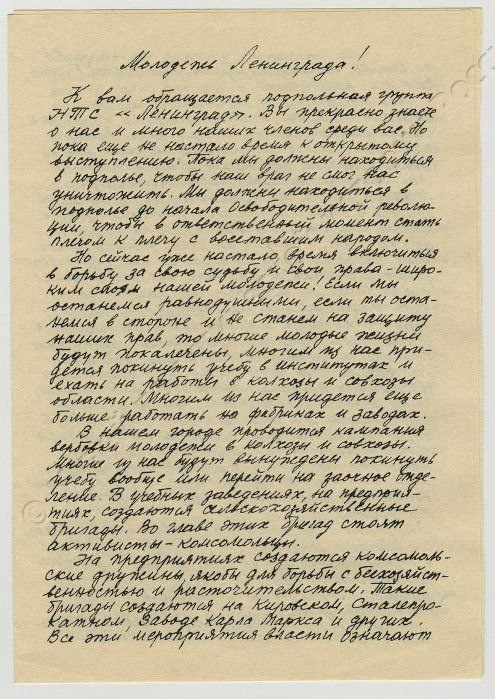 Молодежь Ленинграда!
К вам обращается подпольная группа
НТС «Ленинград». Вы прекрасно знаете
о нас и много наших членов среди вас. Но
пока еще не настало время к открытому
выступлению. Пока мы должны находиться
в подполье, чтобы наш враг не смог нас
уничтожить. Мы должны находиться в
подполье до начала Освободительной револю-
ции, чтобы в ответственный момент стать
плечом к плечу с восставшим народом.
Но сейчас уже настало время включиться
в борьбу за свою судьбу и свои права - широ-
ким слоям нашей молодежи! Если мы
останемся равнодушными, если мы оста-
немся в стороне и не станем на защиту
наших прав, то многие молодые жизни
будут покалечены, многим из нас при-
дется покинуть учебу в институтах и
ехать на работы в колхозы и совхозы
области. Многим из нас придется еще
больше работать на фабриках и заводах.
В нашем городе проводится кампания
вербовки молодежи в колхозы и совхозы.
Многие из нас будут вынуждены покинуть
учебу вообще или перейти на заочное отде-
ление. В учебных заведениях, на предприя-
тиях, создаются сельскохозяйственные
бригады. Во главе этих бригад стоят
активисты-комсомольцы.
На предприятиях создаются комсомоль-
ские дружины, якобы для борьбы с бесхозяйст-
венностью и расточительством. Такие
бригады создаются на Кировском, Сталепро-
катном, Заводе Карла Маркса и других.
Все эти мероприятия власти означают